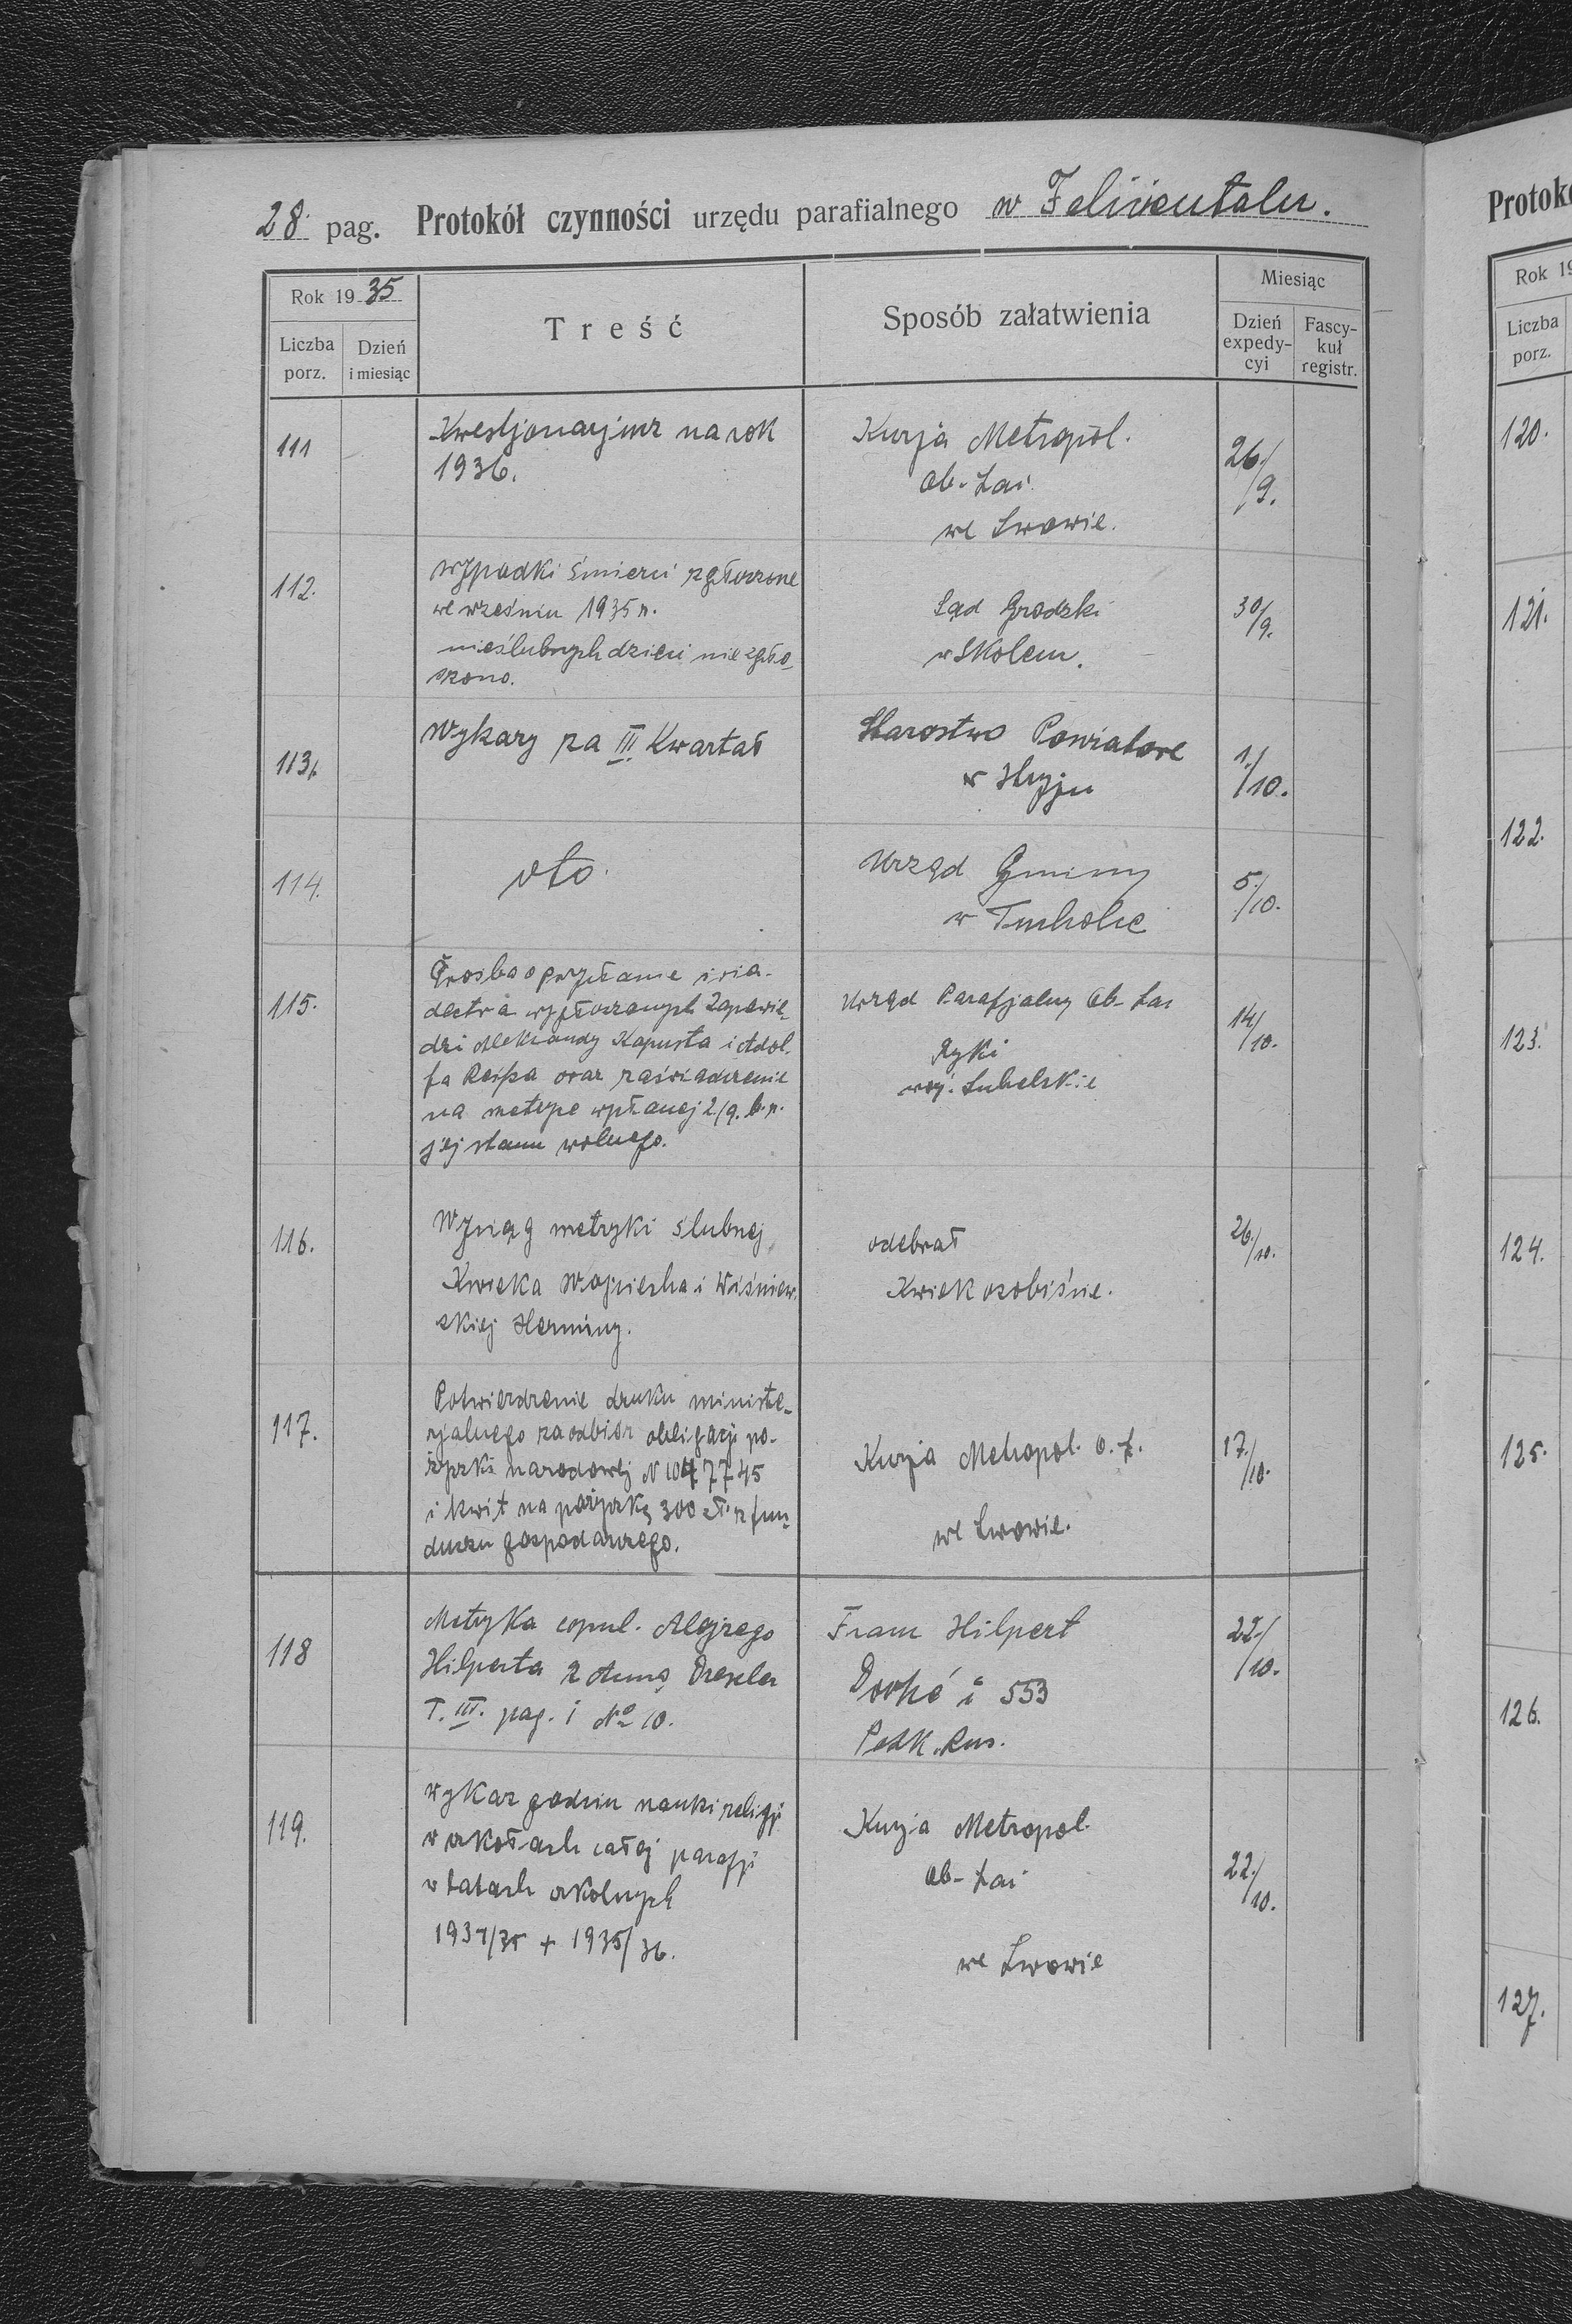 28. pag. Protokół czynności urzędu parafialnego w Felizientalu.
Rok 1935
Liczba porz.
Dzień i miesiąc
Treść
Sposób załatwienia
Miesiąc
Dzień expedy-cyi
Fascy-kuł registr.
111
Kwestjonarjusz na rok
1936.
Kurja Metropol.
ob-Łac.
we Lwowie.
26./9.
112.
wypadki śmierci zgłoszone
we wrześniu 1935 r.
nieślubnych dzieci nie zgło-
szono.
Sąd Grodzki
w Skolem.
30/9.
113.
Wykazy za III. Kwartał
Starostwo Powiatowe
w Stryju
1./10.
114.
dto.
Urząd Gminy
w Tucholce
5./10.
115.
Prośba o przysłanie świa-
dectwa wygłoszonych Zapowie-
dzi Aleksandy Kapusta i Adol-
fa Reipa oraz zaświadczenie
na metryce wysłanej 2/9. b.r.
jej stanu wolnego.
Urząd Parafjalny Ob-Łac
Ryki
woj. Lubelskie
14/10.
116.
Wyciąg metryki ślubnej
Kwieka Wojciecha i Wiśniew-
skiej Herminy.
odebrał
Kwiek osobiście.
26./10.
117.
Potwierdzenie druku ministe-
rjalnego za odbiór obligacji po-
życzki narodowej N 1047745
i kwit na pożyczkę 300 zł z fun-
duszu gospodarczego.
Kurja Metropol. o.ł.
we Lwowie.
17./10.
118
Metryka copul. Alojzego
Hilperta z Anną Drexler
T. III. pag. 1 No 10.
Franz Hilpert
553
Podk. Rus.
22./10.
119.
wykaz godzin nauki religji
w szkołach całej parafji
w latach szkolnych
1934/35 + 1935/36.
Kurja Metropol.
ob-Łac
we Lwowie
22./10.
Protok
Rok 19
Liczba porz.
120.
121.
122.
123.
124.
125.
126.
127.